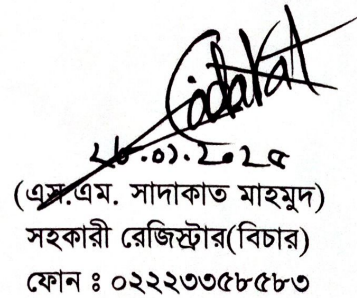 Sadakat
২৮.০১.২০২৫
(এস.এম. সাদাকাত মাহমুদ)
সহকারী রেজিস্ট্রার(বিচার)
ফোন ঃ ০২২২৩৩৫৮৫৮৩